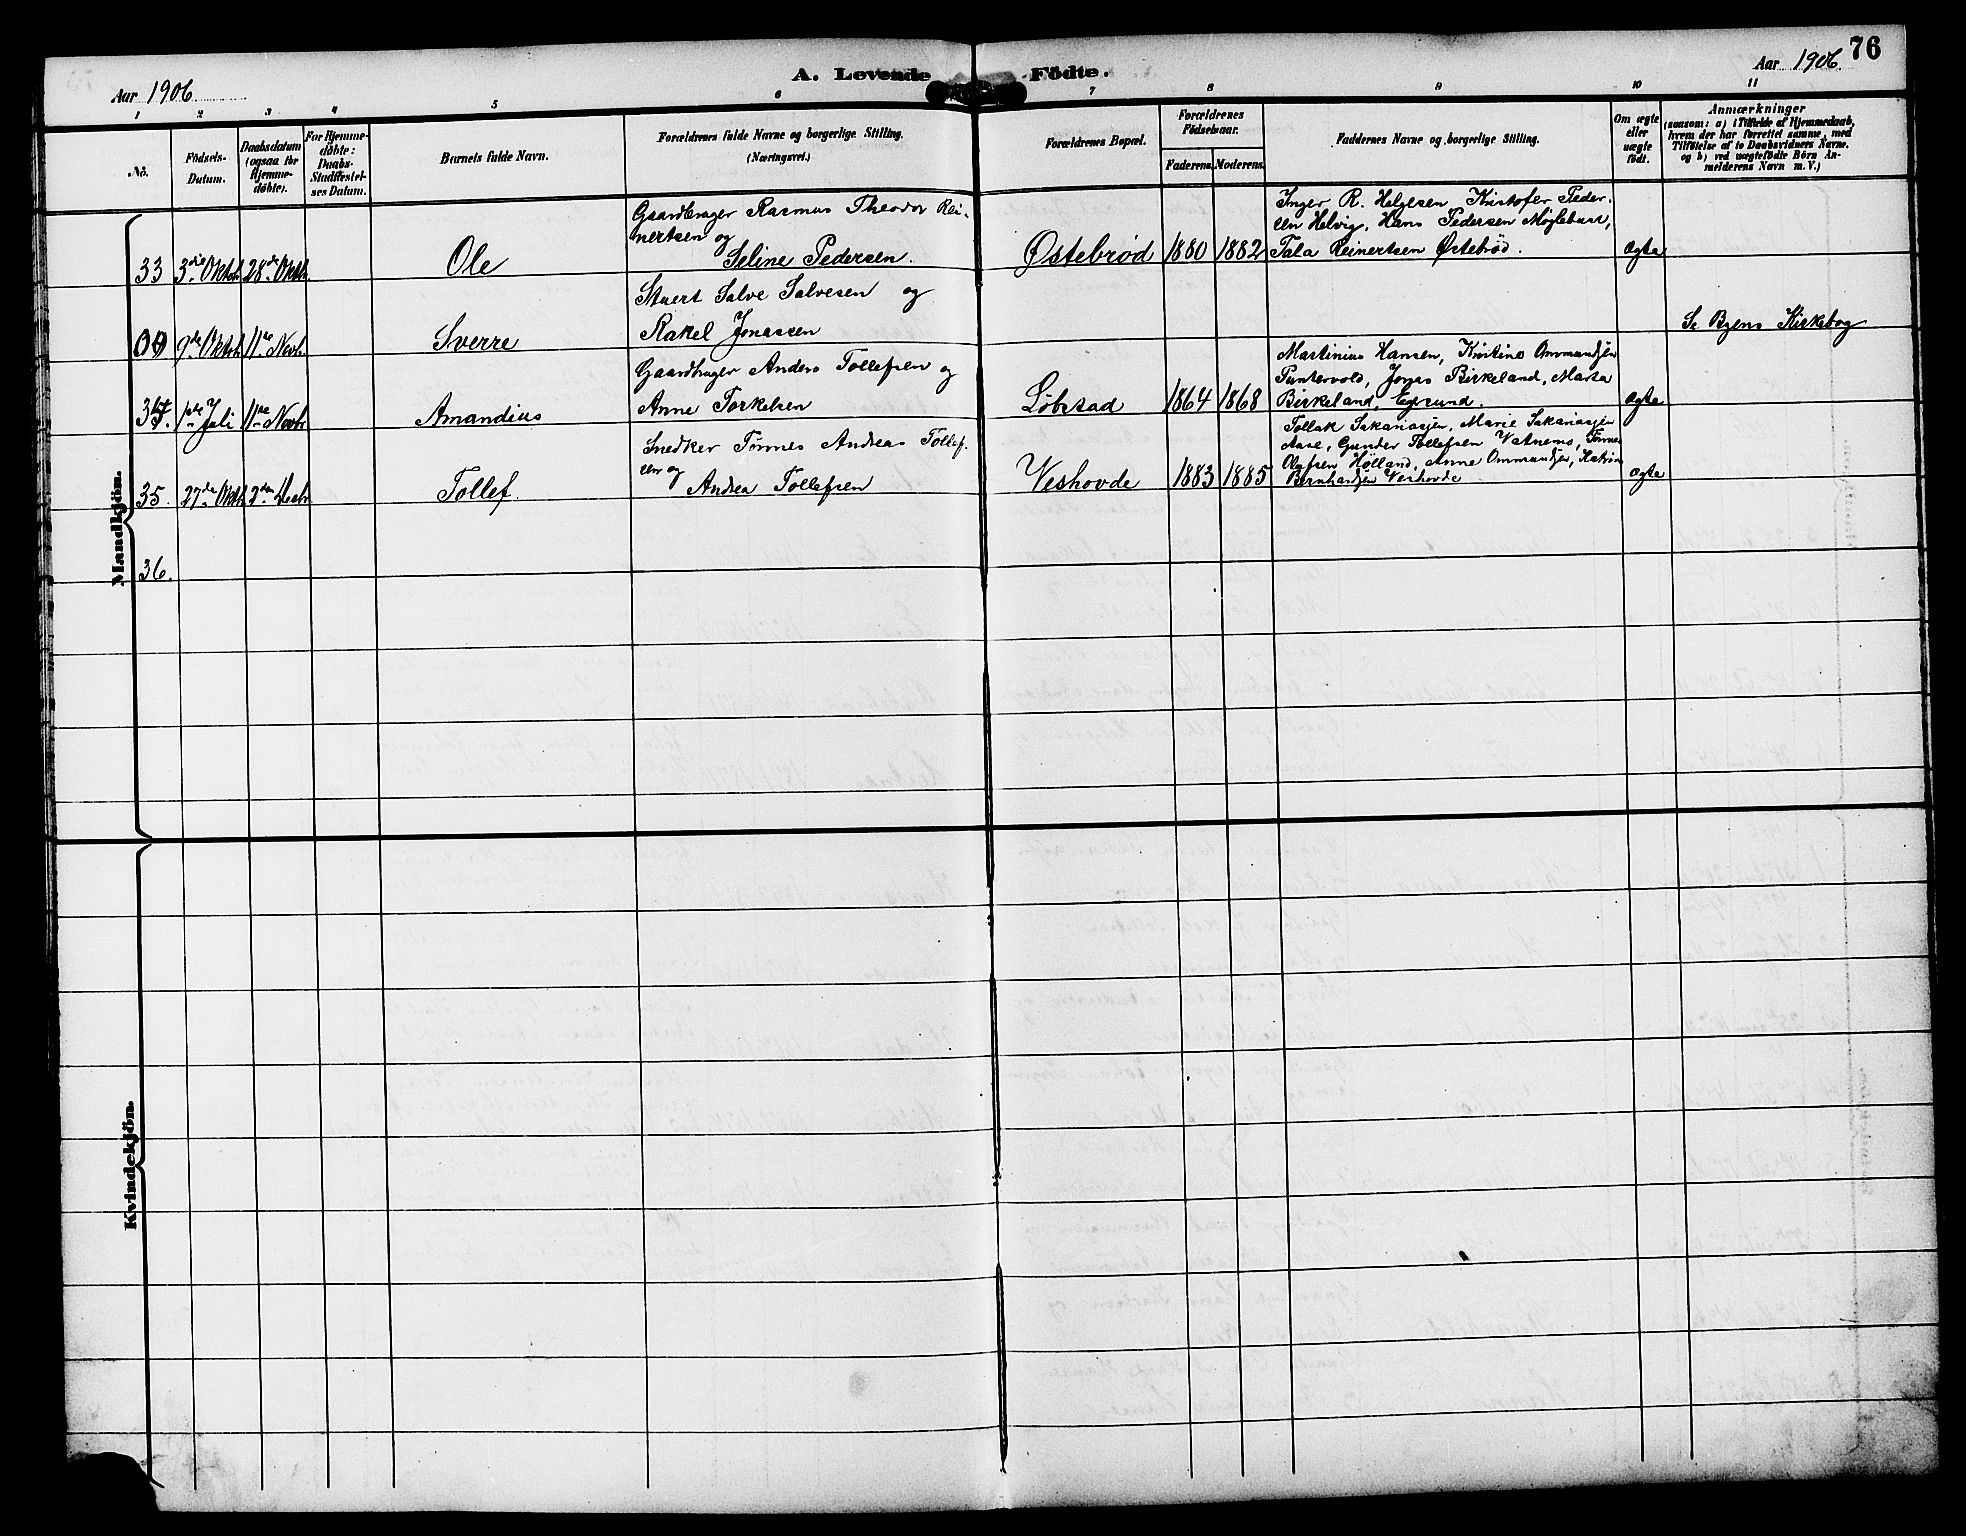 76
A. Levende Födte.
Aar 1906.
Aar 1906.
1 2 3 4 5 6 7 8 9 10 11
No.
Födsels-
Datum.
Daabsdatum
(ogsaa for
Hjemme-
döbte).
For Hjemme-
döbte:
Daabs-
Stadfæstel-
ses Datum.
Barnets fulde Navn.
Forældrenes fulde Navne og borgerlige Stilling.
(Næringsvei.)
Forældrenes Bopæl.
Forældrenes
Födselsaar.
Faderens. Moderens.
Faddernes Navne og borgerlige Stilling.
Om ægte
eller
uægte
födt.
Anmærkninger
(saasom: a) i Tilfælde af Hjemmedaab,
hvem der har forrettet samme, med
Tilföielse af to Daabsvidners Navne.
og b) ved uægtefödte Börn An-
melderens Navn m.V.)
Mandkjön.
33 3die Oktbr. 28de Oktbr.
Ole
Gaardbruger Rasmus Theodor Rei-
nertsen og
Seline Pedersen.
Østebrød 1880 1882
Inger R. Helgesen Kristofer Peder-
sen Helvig, Hans Pedersen Møglebust,
Tala Reinertsen Østebröd.
ægte
9de Oktbr. 11te Novbr.
Sverre
Stuert Salve Salvesen og
Rakel Jonassen
Se Byens Kirkebog
34. 1ste Juli 11te Novbr
Amandius
Gaardbruger Anders Tollefsen og
Anne Torkelsen
Löbstad 1864 1868
Martinius Hansen, Kristine Ommundsen
Puntervold, Jonas Birkeland, Marta
Birkeland, Egersund.
ægte
35. 27de Oktbr. 2den Decbr
Tollef
Snedker Tønnes Andreas Tollef-
sen og
Andrea Tollefsen
Veshovde 1883 1885
Tollak Sakariasjen, Marie Sakariasjen
Aase, Gunder Tollefsen Vatnemo, Tønnes
Olafsen Hølland, Anne Ommundsen, Katrine
Bernhardsen Veshovde
ægte
36.
Kvindekjön.